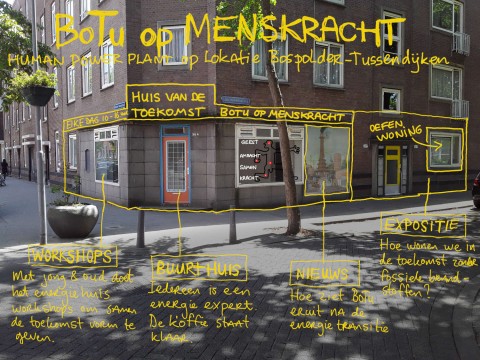 BoTu op MENSKRACHT
HUMAN POWER PLANT op Lokatie Bospolder-Tussendijken
HUIS VAN DE
TOEKOMST
BOTU OP MENSKRACHT
ELKE DAG 10-16
OEFEN
WONING
GEEFT
SAMEN
KRACHT
WORKSHOPS
Met jong & oud doet
het energiehuis
workshops om samen
de toekomst vorm te
geven.
BUURTHUIS
Iedereen is een
energie expert.
De koffie staat
klaar
NIEUWS
Hoe ziet BoTu
eruit na de
energietransitie
EXPOSITIE
Hoe wonen we in
de toekomst zonder
fossiele brand-
stoffen?